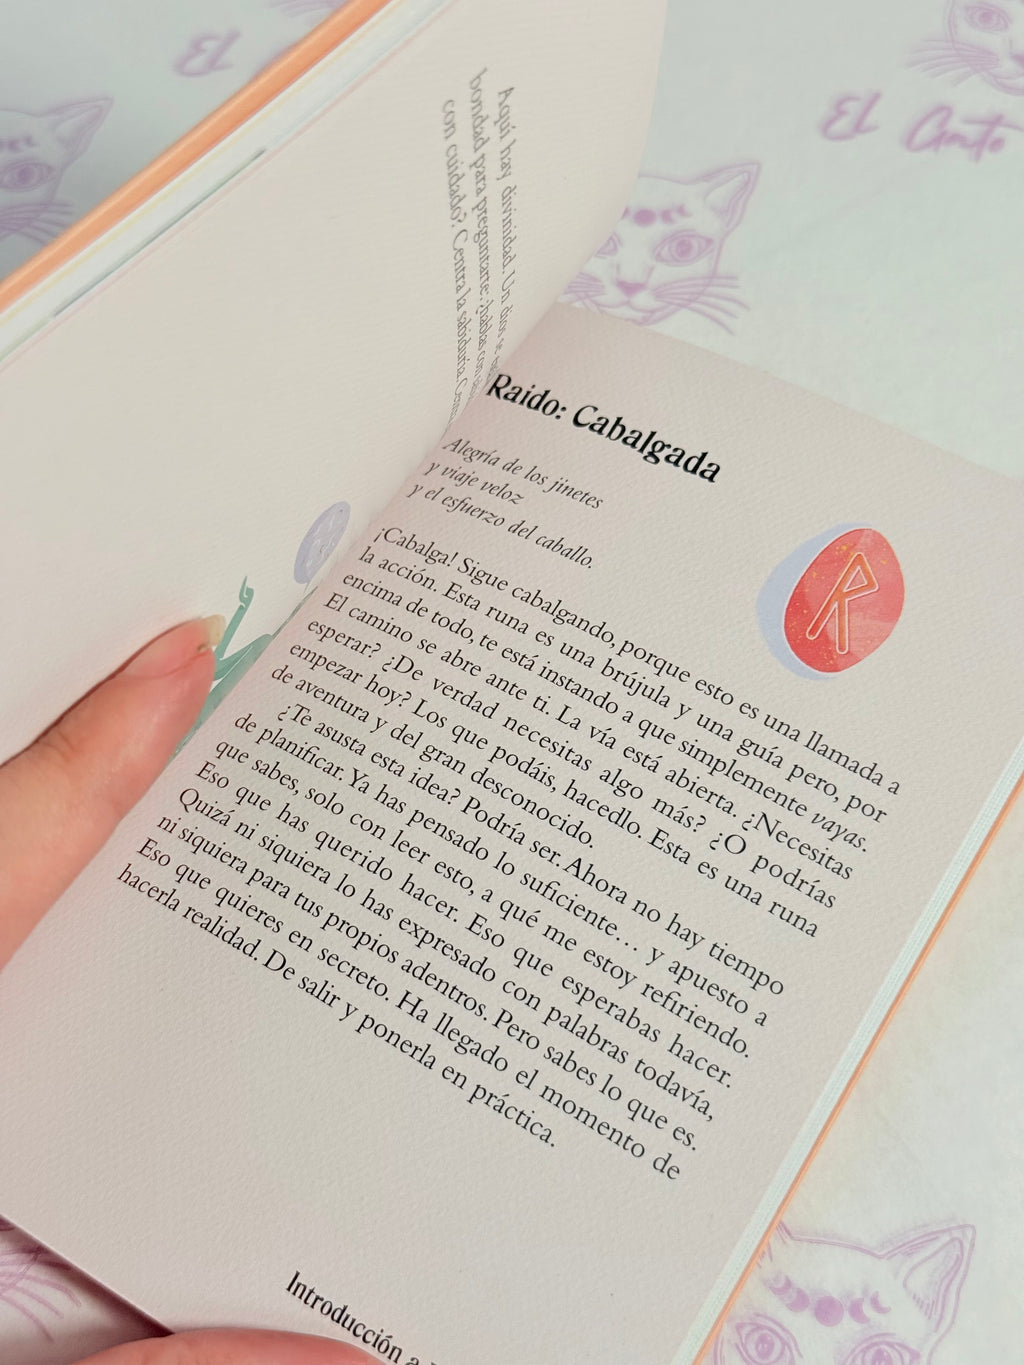 El
El Gato
Aquí hay divinidad. Un dios se
bondad para preguntarte: ¿hablas con
con cuidado?. Centra la sabiduría.
Raido: Cabalgada
Alegría de los jinetes
y viaje veloz
y el esfuerzo del caballo.
R
¡Cabalga! Sigue cabalgando, porque esto es una llamada a
la acción. Esta runa es una brújula y una guía pero, por
encima de todo, te está instando a que simplemente vayas.
El camino se abre ante ti. La vía está abierta. ¿Necesitas
esperar? ¿De verdad necesitas algo más? ¿O podrías
empezar hoy? Los que podáis, hacedlo. Esta es una runa
de aventura y del gran desconocido.
¿Te asusta esta idea? Podría ser. Ahora no hay tiempo
de planificar. Ya has pensado lo suficiente… y apuesto a
que sabes, solo con leer esto, a qué me estoy refiriendo.
Eso que has querido hacer. Eso que esperabas hacer.
Quizá ni siquiera lo has expresado con palabras todavía,
ni siquiera para tus propios adentros. Pero sabes lo que es.
Eso que quieres en secreto. Ha llegado el momento de
hacerla realidad. De salir y ponerla en práctica.
Introducción a